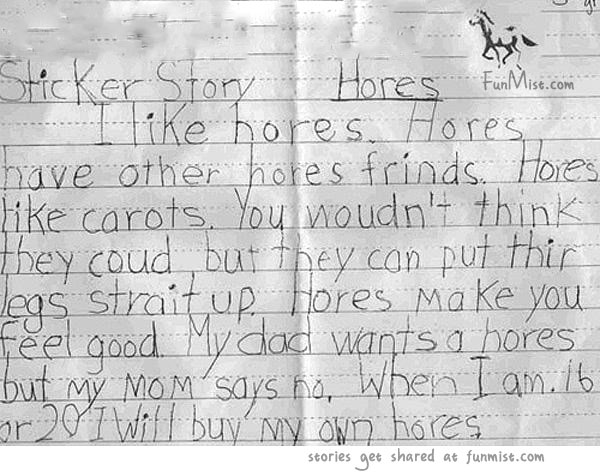 Sticker Story Hores
FunMist.com
I like hores. Hores
have other hores frinds. Hores
like carots. You woudn't think
they coud but they can put thir
legs strait up. Hores make you
feel good. My dad wants a hores
but my mom says no. When I am. 16
or 20 I will buy my own hores
stories get shared at funmist.com